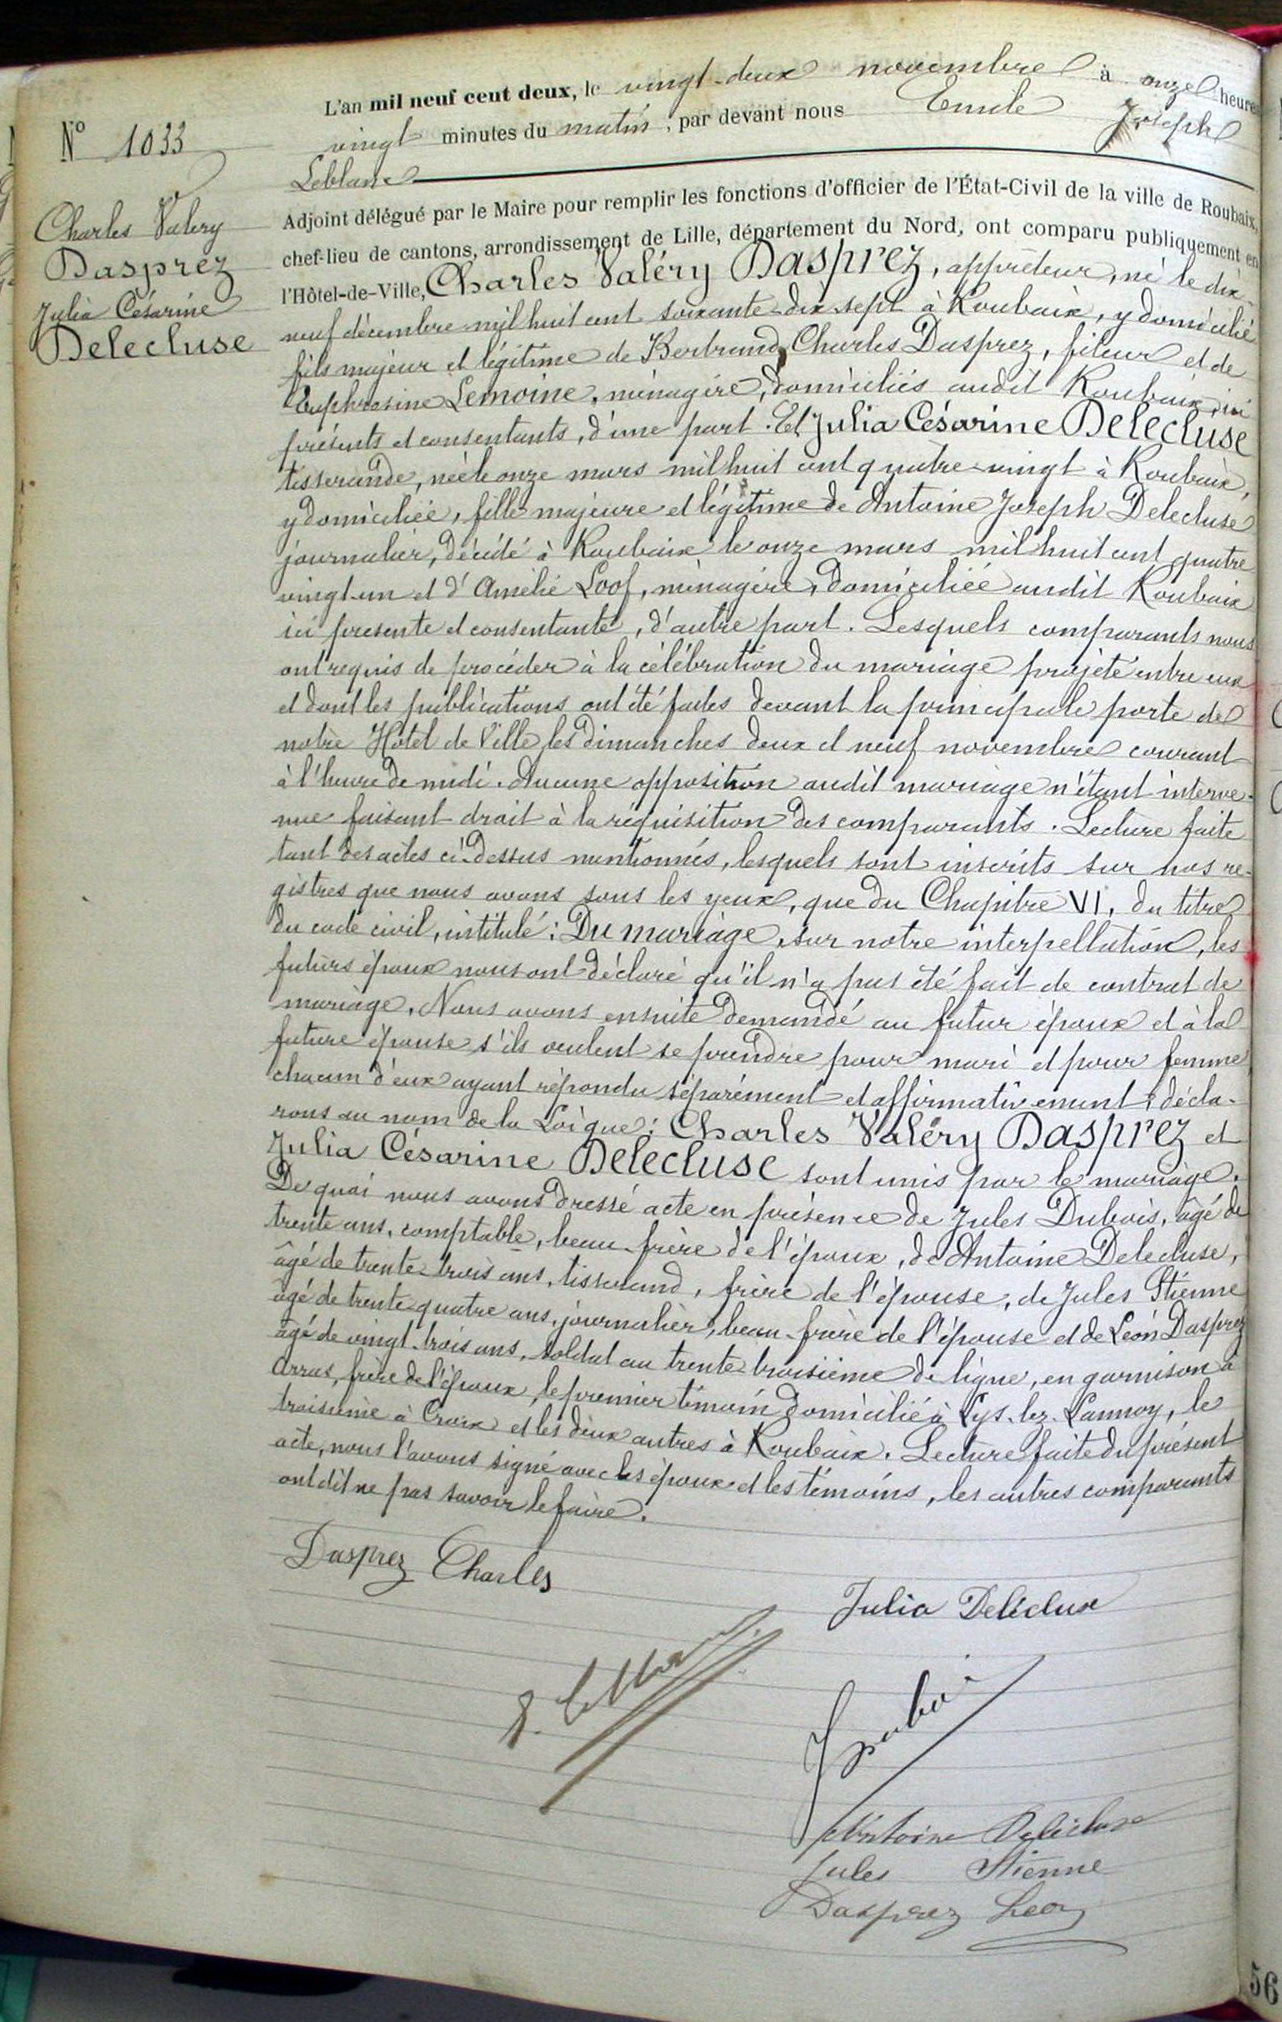 L'an mil neuf cent deux, le vingt-deux novembre à onze heures
N° 1033
vingt minutes du matin, par devant nous Emile Joseph
Leblanc
Charles Valery
Dasprez
Julia Césarine
Delecluse
Adjoint délégué par le Maire pour remplir les fonctions d'officier de l'État-Civil de la ville de Roubaix,
chef-lieu de cantons, arrondissement de Lille, département du Nord, ont comparu publiquement en
l'Hôtel-de-Ville, Charles Valéry Dasprez, appréteur, né le dix-
neuf décembre mil huit cent soixante-dix-sept à Roubaix, y domicilié
fils majeur et légitime de Bertrand Charles Dasprez, fileur et de
Euphrosine Lemoine, ménagère, domiciliés audit Roubaix, ici
présents et consentants, d'une part. Et Julia Césarine Delecluse
tisserande, née le onze mars mil huit cent quatre-vingt à Roubaix,
y domiciliée, fille majeure et légitime de Antoine Joseph Delecluse
journalier, décédé à Roubaix le onze mars mil huit cent quatre
vingt-un et d'Amélie Loof, ménagère, domiciliée audit Roubaix
ici présente et consentante, d'autre part. Lesquels comparants nous
ont requis de procéder à la célébration du mariage projeté entre eux
et dont les publications ont été faites devant la principale porte de
notre Hôtel de Ville, les dimanches deux et neuf novembre courant
à l'heure de midi. Aucune opposition audit mariage n'étant interve-
nue faisant droit à la réquisition des comparants. Lecture faite
tant des actes ci-dessus mentionnés, lesquels sont inscrits sur nos re-
gistres que nous avons sous les yeux, que du Chapitre VI, du titre
du code civil, intitulé: Du mariage, sur notre interpellation, les
futurs époux nous ont déclaré qu'il n'a pas été fait de contrat de
mariage. Nous avons ensuite demandé au futur époux et à la
future épouse s'ils veulent se prendre pour mari et pour femme
chacun d'eux ayant répondu séparément et affirmativement, décla-
rons au nom de la Loi que: Charles Valéry Dasprez et
Julia Césarine Delecluse sont unis par le mariage.
De quoi nous avons dressé acte en présence de Jules Dubois, âgé de
trente ans, comptable, beau-frère de l'époux, de Antoine Delecluse,
âgé de trente-trois ans, tisserand, frère de l'épouse, de Jules Stienne
âgé de trente-quatre ans, journalier, beau-frère de l'épouse et de Léon Dasprez
âgé de vingt-trois ans, soldat au trente-troisième de ligne, en garnison à
Arras, frère de l'époux, le premier témoin domicilié à Lys-lez-Lannoy, le
troisième à Croix et les deux autres à Roubaix. Lecture faite du présent
acte, nous l'avons signé avec les époux et les témoins, les autres comparants
ont dit ne pas savoir le faire.
Dasprez Charles
Julia Delécluse
E. Leblanc
J Dubois
Antoine Delécluse
Jules Stienne
Dasprez Léon
56